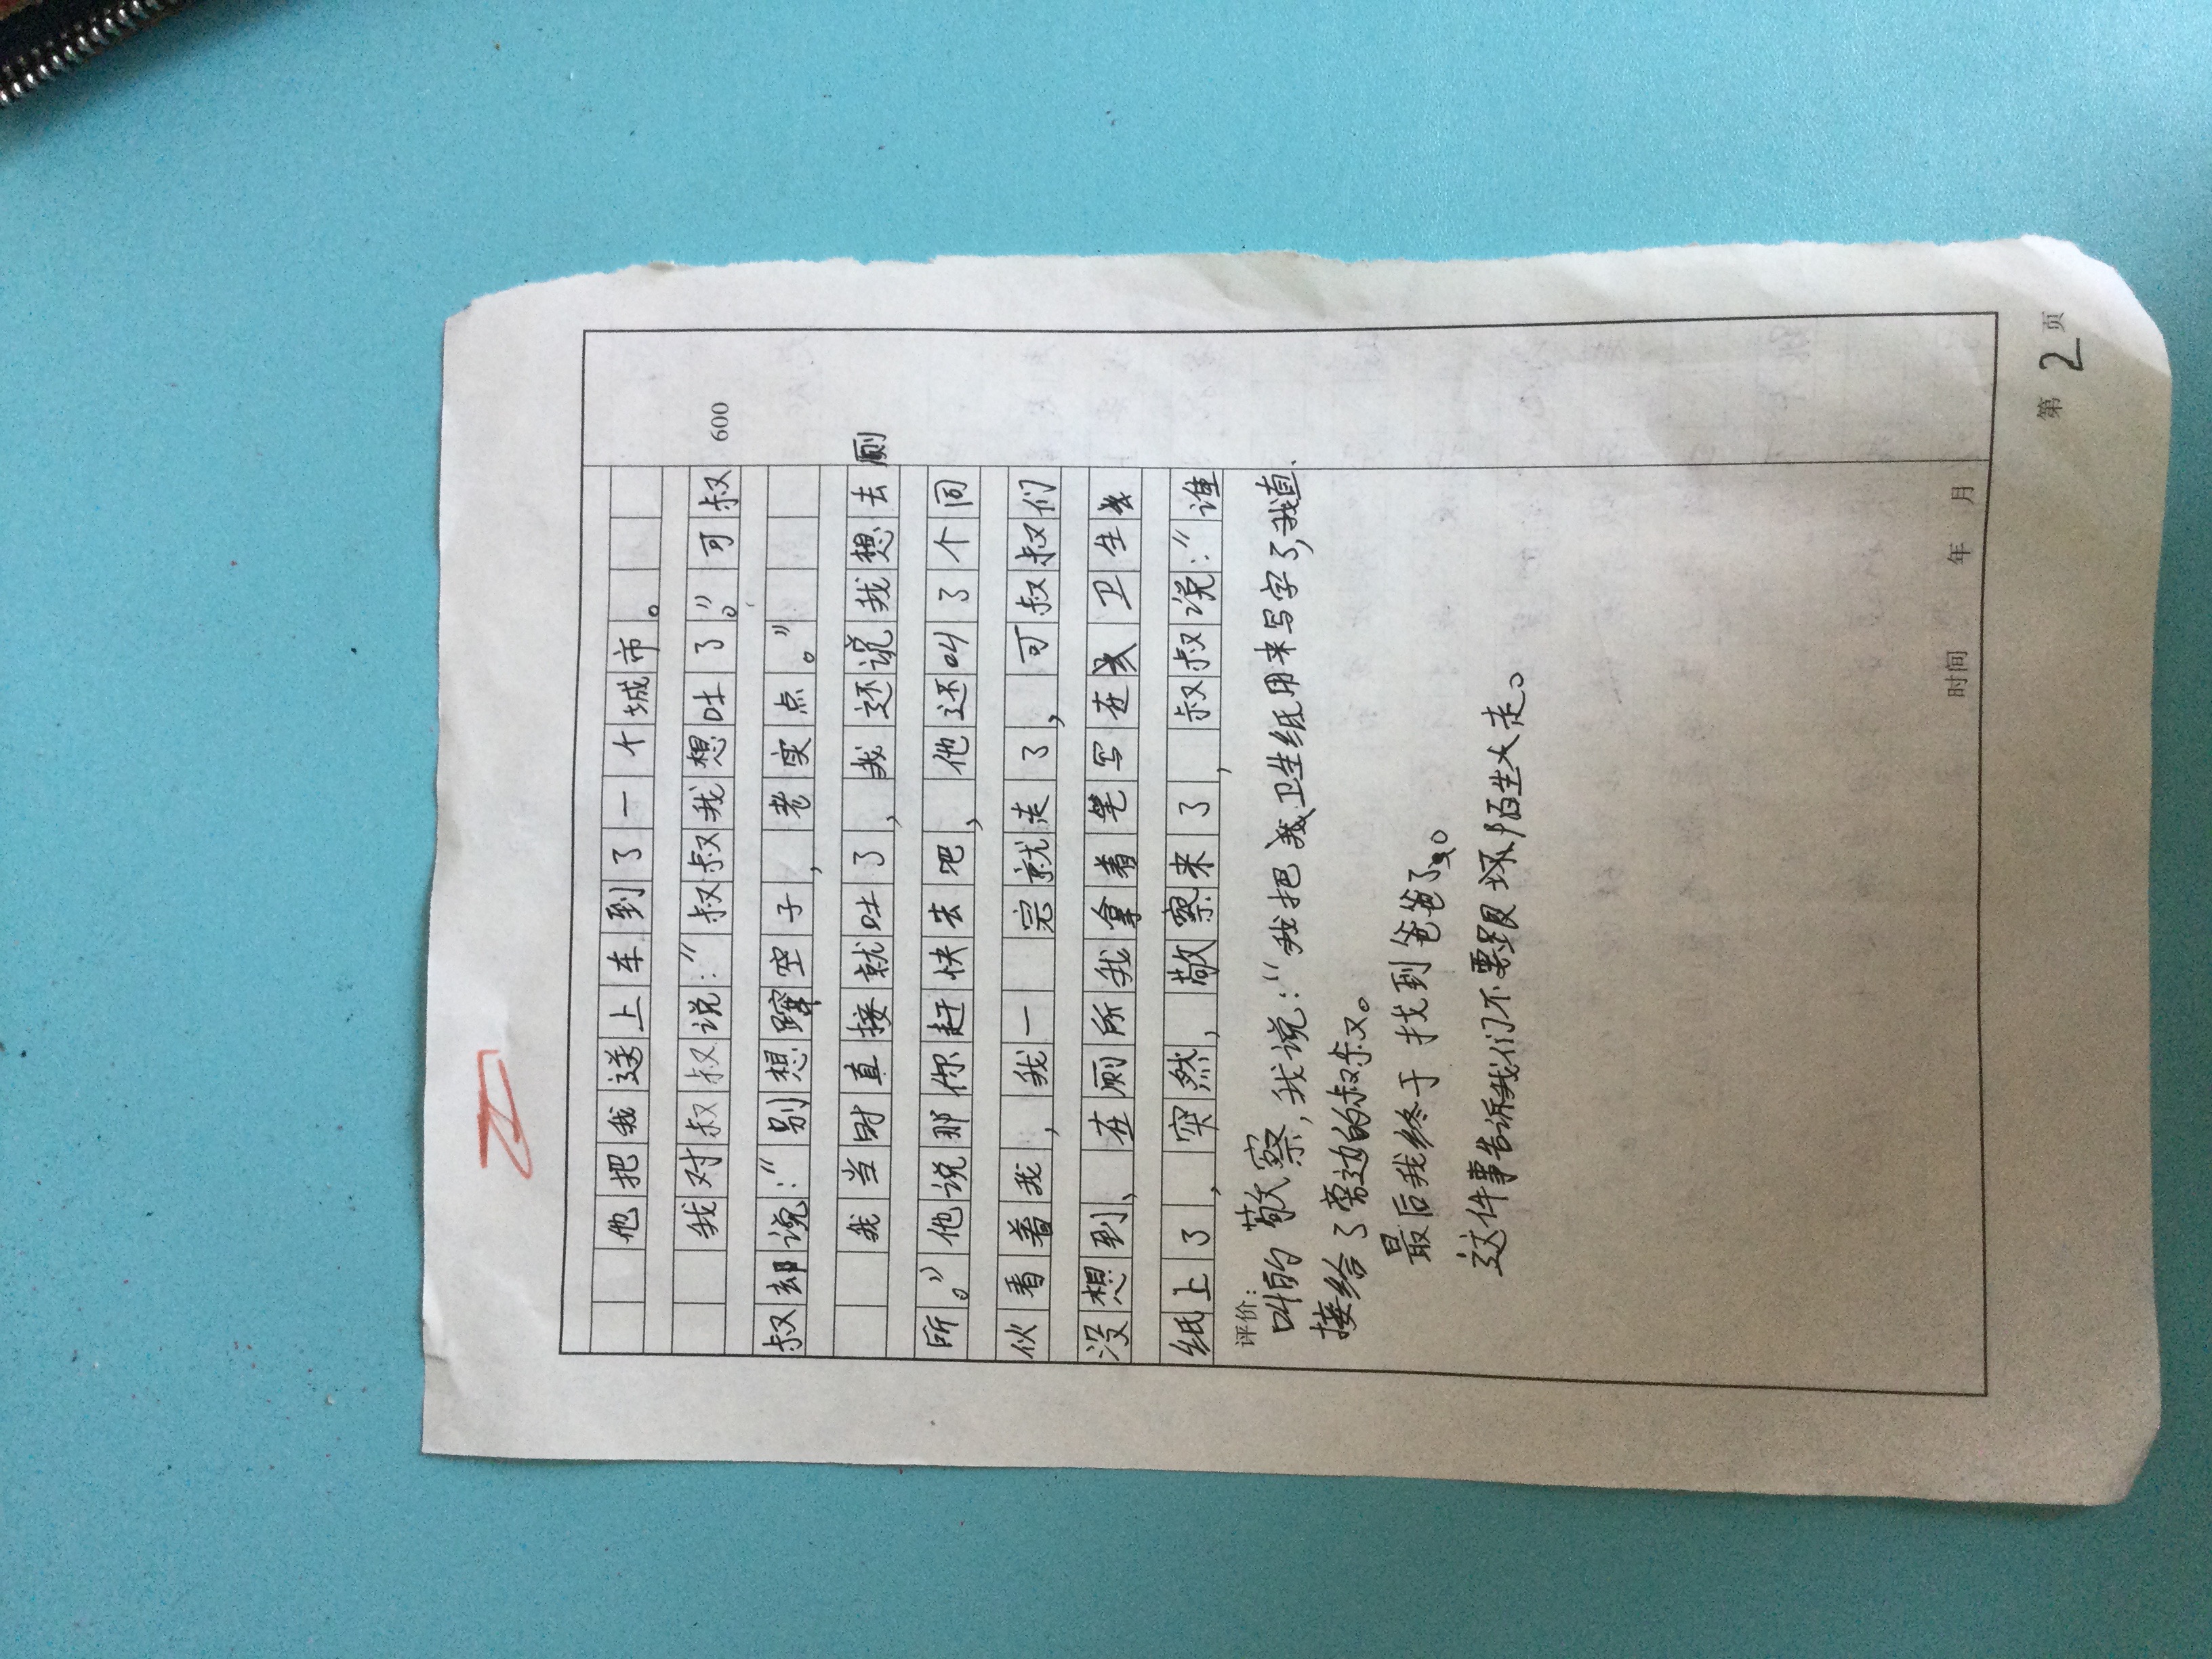 他把我送上车到了一个城市。
我对叔叔说：“叔叔我想吐了。”可叔
600
叔却说：“别想蹿空子，老实点。”
我当时直接就吐了，我还说我想去厕
所。”他说那你赶快去吧，他还叫了个同
伙看着我，我一完就走了，可叔叔们
没想到，在厕所我拿着笔写在卫生
纸上了，突然，敬察来了，叔叔说：“谁
评价：
叫的敬察，我说：“我把我卫生纸用来写字了，我直
接给了旁边的叔叔。
最后我终于找到爸爸了。
这件事告诉我们不要跟坏陌生人走。
时间 年 月
第 2 页